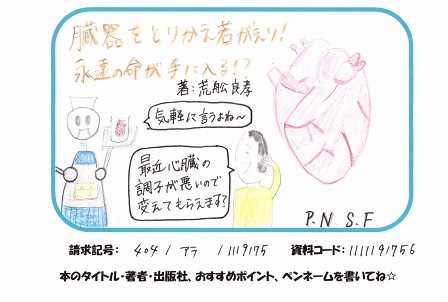 臓器をとりかえ若がえり！
永遠の命が手に入る！？
著：荒舩良孝
気軽に言うよね～
最近心臓の
調子が悪いので
変えてもらえます？
P.N S.F
請求記号： 404 / アラ / 1119175 資料コード：1111191756
本のタイトル・著者・出版社、おすすめポイント、ペンネームを書いてね☆